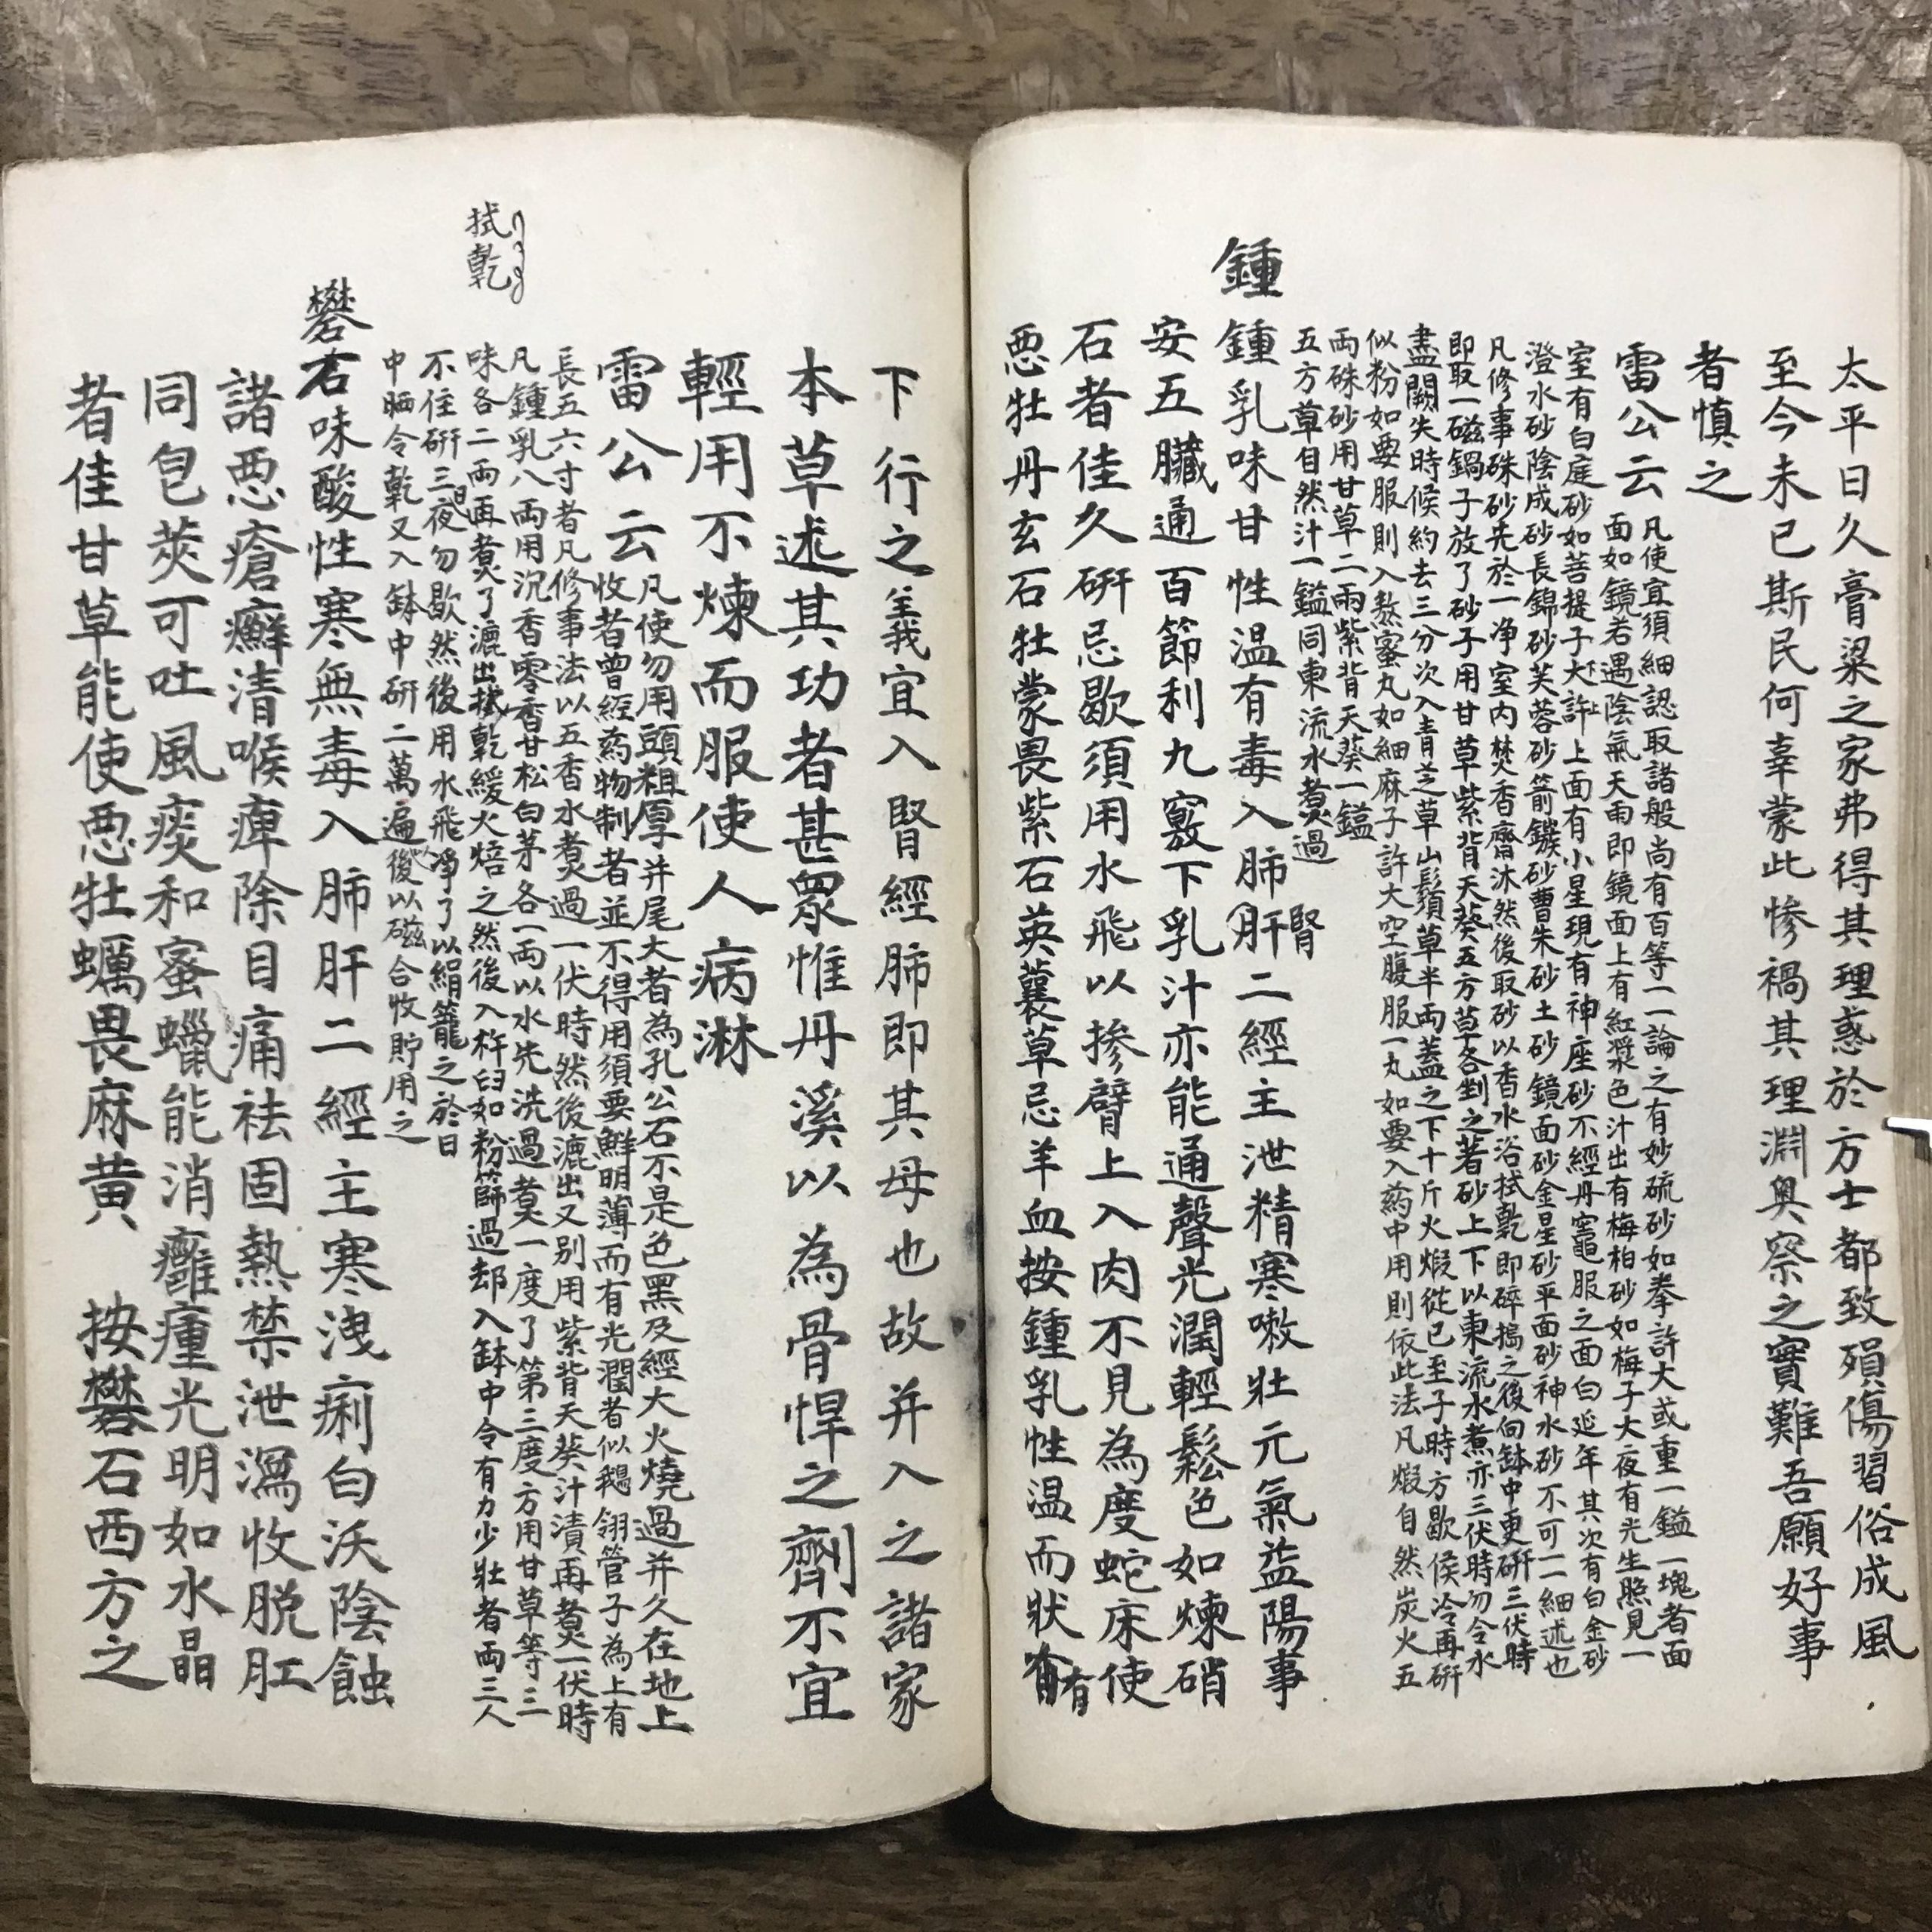 太平日久膏粱之家弗得其理惑於方士都致殞傷習俗成風
至今未已斯民何辜蒙此慘禍其理淵奧察之實難吾願好事
者慎之
雷公云
凡使宜須細認取諸般尚有百等一一論之有妙硫砂如拳許大或重一鎰一塊者面
面如鏡若遇陰氣天雨即鏡面上有紅漿色汁出有梅柏砂如梅子大夜有光生照見一
室有白庭砂如菩提子大許上面有小星現有神座砂不經丹竈服之面白延年其次有白金砂
澄水砂陰成砂長錦砂芙蓉砂箭鏃砂曹朱砂土砂鏡面砂金星砂平面砂神水砂不可一一細述也
凡修事硃砂先於一净室内焚香齋沐然後取砂以香水浴拭乾即碎搗之後向缽中更研三伏時
即取一磁鍋子放了砂子用甘草紫背天葵五方草各剉之著砂上下以東流水煮亦三伏時勿令水
盡闕失時候約去三分次入青芝草山鬚草半兩蓋之下十斤火煅從巳至子時方歇候冷再研
似粉如要服則入熬蜜丸如細麻子許大空腹服一丸如要入药中用則依此法凡煅自然炭火五
兩硃砂用甘草二兩紫背天葵一鎰
五方草自然汁一鎰同東流水煮過
鍾
鍾乳味甘性温有毒入肺肝二經主泄精寒嗽壯元氣益陽事
腎
安五臟通百節利九竅下乳汁亦能通聲光潤輕鬆色如煉硝
石者佳久研忌歇須用水飛以摻臂上入肉不見為度蛇床使
惡牡丹玄石牡蒙畏紫石英蘘草忌羊血按鍾乳性温而狀有
下行之義宜入腎經肺即其母也故并入之諸家
本草述其功者甚眾惟丹溪以為骨悍之劑不宜
輕用不煉而服使人病淋
雷公云
凡使勿用頭粗厚并尾大者為孔公石不是色黑及經大火燒過并久在地上
收者曾經药物制者並不得用須要鮮明薄而有光潤者似鵝翎管子為上有
長五六寸者凡修事法以五香水煮過一伏時然後漉出又別用紫背天葵汁漬再煮一伏時
凡鍾乳八兩用沉香零香甘松白茅各一兩以水先洗過煮一度了第三度方用甘草等二
味各二兩再煮了漉出拭乾緩火焙之然後入杵臼如粉篩過却入缽中令有力少壯者兩三人
拭乾
不住研三日夜勿歇然後用水飛净了以絹籠之於日
中晒令乾又入缽中研二萬遍後以磁合收貯用之
礬
石味酸性寒無毒入肺肝二經主寒洩痢白沃陰蝕
諸惡瘡癬清喉痺除目痛祛固熱禁泄瀉收脱肛
同皂莢可吐風痰和蜜蠟能消癰瘇光明如水晶
者佳甘草能使惡牡蠣畏麻黄 按礬石西方之